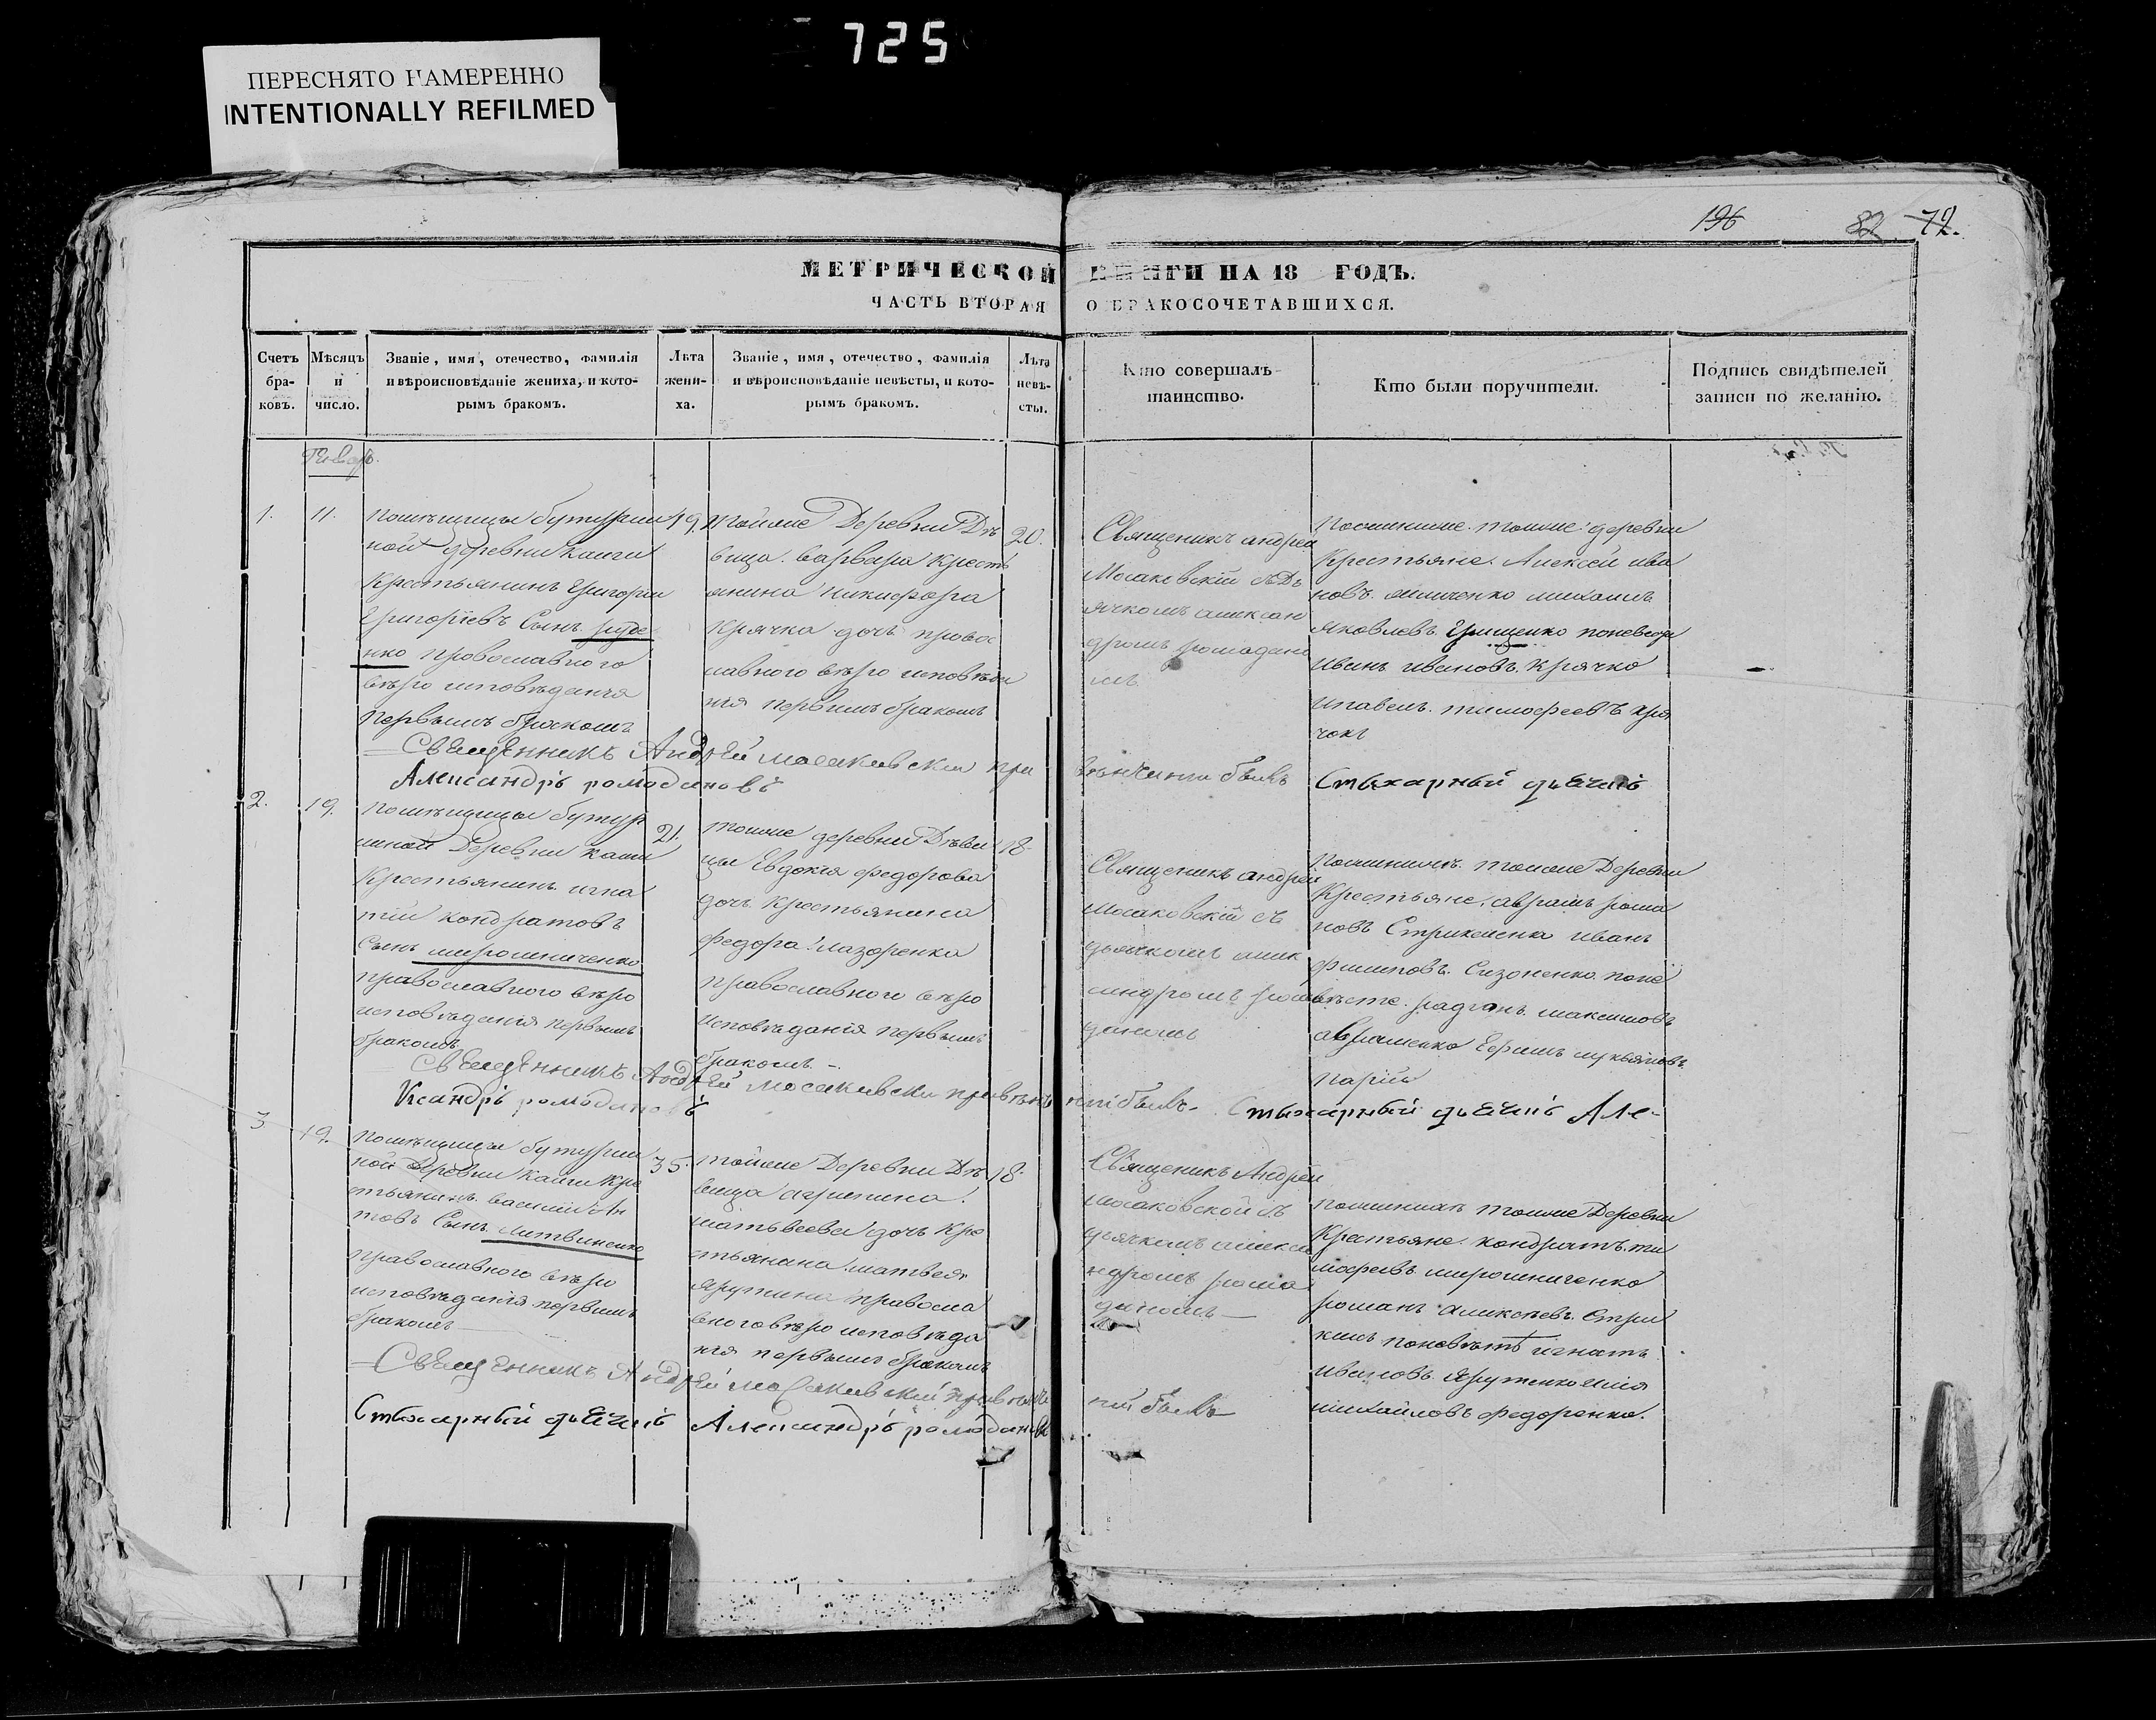 725
ПЕРЕСНЯТО НАМЕРЕННО
INTENTIONALLY REFILMED
196 82 72.
МЕТРИЧЕСКОЙ КНИГИ НА 18 ГОДЪ.
ЧАСТЬ ВТОРАЯ О БРАКОСОЧЕТАВШИХСЯ.
Счетъ
бра-
ковъ.
Мѣсяцъ
и
число.
Званіе, имя, отечество, фамилія
и вѣроисповѣданіе жениха, и кото-
рымъ бракомъ.
Лѣта
жени-
ха.
Званіе, имя, отечество, фамилія
и вѣроисповѣданіе невѣсты, и кото-
рымъ бракомъ.
Лѣта
невѣ-
сты.
Кто совершалъ
таинство.
Кто были поручители.
Подпись свидѣтелей
записи по желанію.
1.
11.
помѣщицы бутурли
ной деревни
Крестьянинъ Григорий
Григоріевъ Сынъ руде
нко православного
вѣро исповѣданія
первымъ бракомъ
19.
тойже Деревни Дѣ
вица варвара Крестя
янина Никифора
Крячка дочь правос
лавного вѣро исповѣда
нія первымъ бракомъ
20.
Священикъ андрей
Мосаковскій съ Дь
ячкомъ алексан
дромъ ромадано
мъ
тойже деревни
Крестьяне Алексей ива
новъ михаилъ
яковлевъ Грищенко
иванъ ивановъ Крячко
ипавелъ тимофеевъ кря
чокъ
Свещенникъ Андрей мосаковский при вѣнчании былъ Стыхарный дьячикъ
Александръ ромодановъ
2.
19.
помѣщицы бутур
линой Деревни
Крестьянинъ игна
тий кондратовъ
Сынъ мирошниченко
православного вѣро
исповѣданія первымъ
бракомъ
21.
тойже деревни Дѣви
ца Евдокія федорова
дочь Крестьянина
федора лазоренка
православного вѣро
исповѣданія первымъ
бракомъ.
18.
Священикъ андрей
Мосаковскій съ
дьячкомъ алек
сандромъ рома
даномъ
тойже Деревни
Крестьяне аврамъ рома
новъ иванъ
филиповъ Сизоненко
максимовъ
авраменко Ефимъ лукьяновъ
Свещенникъ Андрей мосаковски при вѣнчаніи былъ. Стыхарный дьячикъ Але-
Ксандръ ромодановъ
3
19.
помѣщицы бутурли
ной Деревни Кре
стьянинъ василий
товъ Сынъ литвиненко
православного вѣро
исповѣданія первымъ
бракомъ
35.
тойже Деревни Дѣ
вица агрипина
матвеева дочь Кре
стьянина матвея
православ
вного вѣро исповѣда
нія первымъ бракомъ
18.
Священикъ Андрей
мосаковской съ
дьячкомъ алекса
ндромъ рома
даномъ
тойже Деревни
Крестьяне кондратъ ти
мофеевъ мирошниченко
романъ алексѣевъ Стри
игнатъ
ивановъ
михайловъ федоренко.
Свещенникъ Андрей мосаковский при вѣнча ніи былъ
Стыхарный дьячикъ Александръ ромодановъ